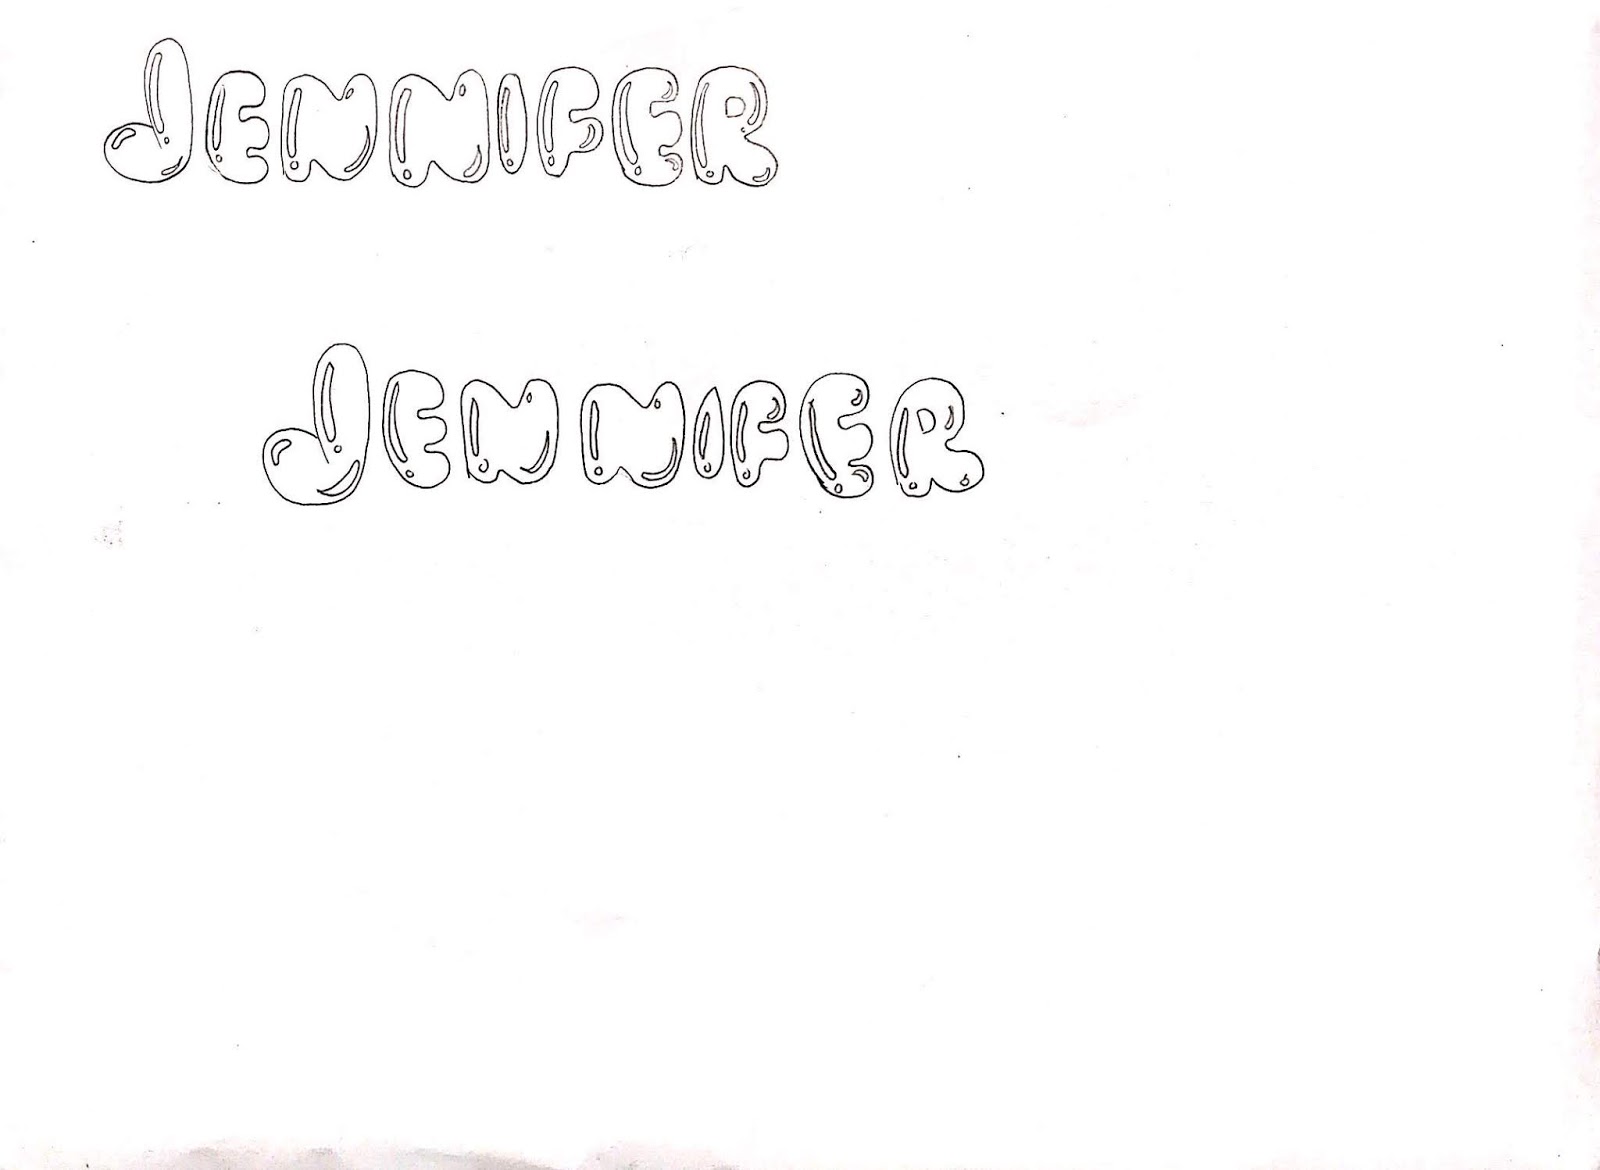 JENNIFER
JENNIFER